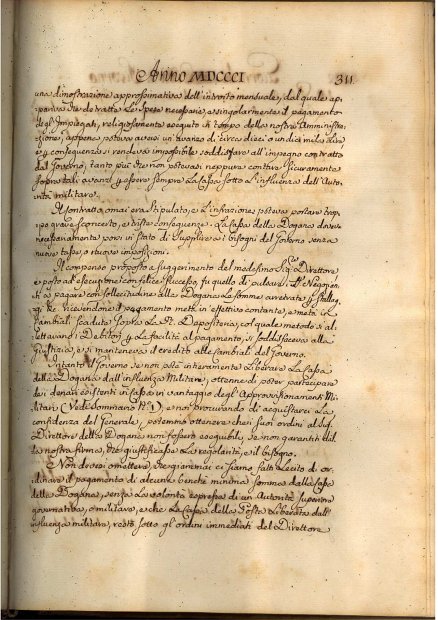 Anno MDCCCI 311.
una dimostrazione approssimativa dell'introito mensuale, dal quale ap-
pariva che detratte le spese necessarie, e singolarmente il pagamento
degl'Impiegati, religiosamente eseguito in tempo della nostra Amministra-
zione, appena poteva aversi un'avanzo di circa dieci o undici mila lire
e p conseguenza si rendeva impossibile soddisfare all'impegno contratto
dal Governo, tanto più che non potevasi neppure contare sicuramente
sopra tali avanzi p essere sempre la Cassa sotto l'influenza dell'Auto-
rità militare.
Il Contratto omai era Stipulato, e l'infrazione poteva portare trop-
po grave sconcerto, e triste conseguenze. La Cassa della Dogana doveva
necessariamente porsi in stato di supplire a i bisogni del Governo senza
nuove tasse, o nuove imposizioni.
Il compenso proposto a suggerimento del medesimo Sig.r Direttore
e posto ad esecuzione con felice successo, fu quello di pulsare i Negozian-
ti a pagare con sollecitudine alla Dogana le somme arretrate p stallag-
gi &c. ricevendone il pagamento metà in effettivo contante, e metà in
Cambiali scadute sopra la R. Depositeria, col quale metodo si al-
lettavano i Debitori p la facilità al pagamento, si soddisfaceva alla
giustizia, e si manteneva il credito alle Cambiali del Governo.
Intanto il Governo se non potè interamente liberare la Cassa
della Dogana dall'influenza Militare, ottenne di poter partecipare
dei denari esistenti in Cassa in vantaggio degl'Approvisionamenti Mi-
litari (Vede Sommario N.° 1), e noi procurando di acquistarci la
confidenza del Generale, potemmo ottenere che i suoi ordini al Sig.
Direttore della Dogana non fossero eseguibili se non garantiti dal-
la nostra firma, che giustificasse la regolarità, e il bisogno.
Non devesi omettere, che giammai ci siamo fatti lecito di or-
dinare il pagamento di alcuna benchè minima somma dalla Cassa
della Dogana, senza la volontà espressa di un'Autorità superiore
governativa, o militare, e che la Cassa della Posta liberata dall'
influenza militare, restò sotto gli ordini immediati del Direttore